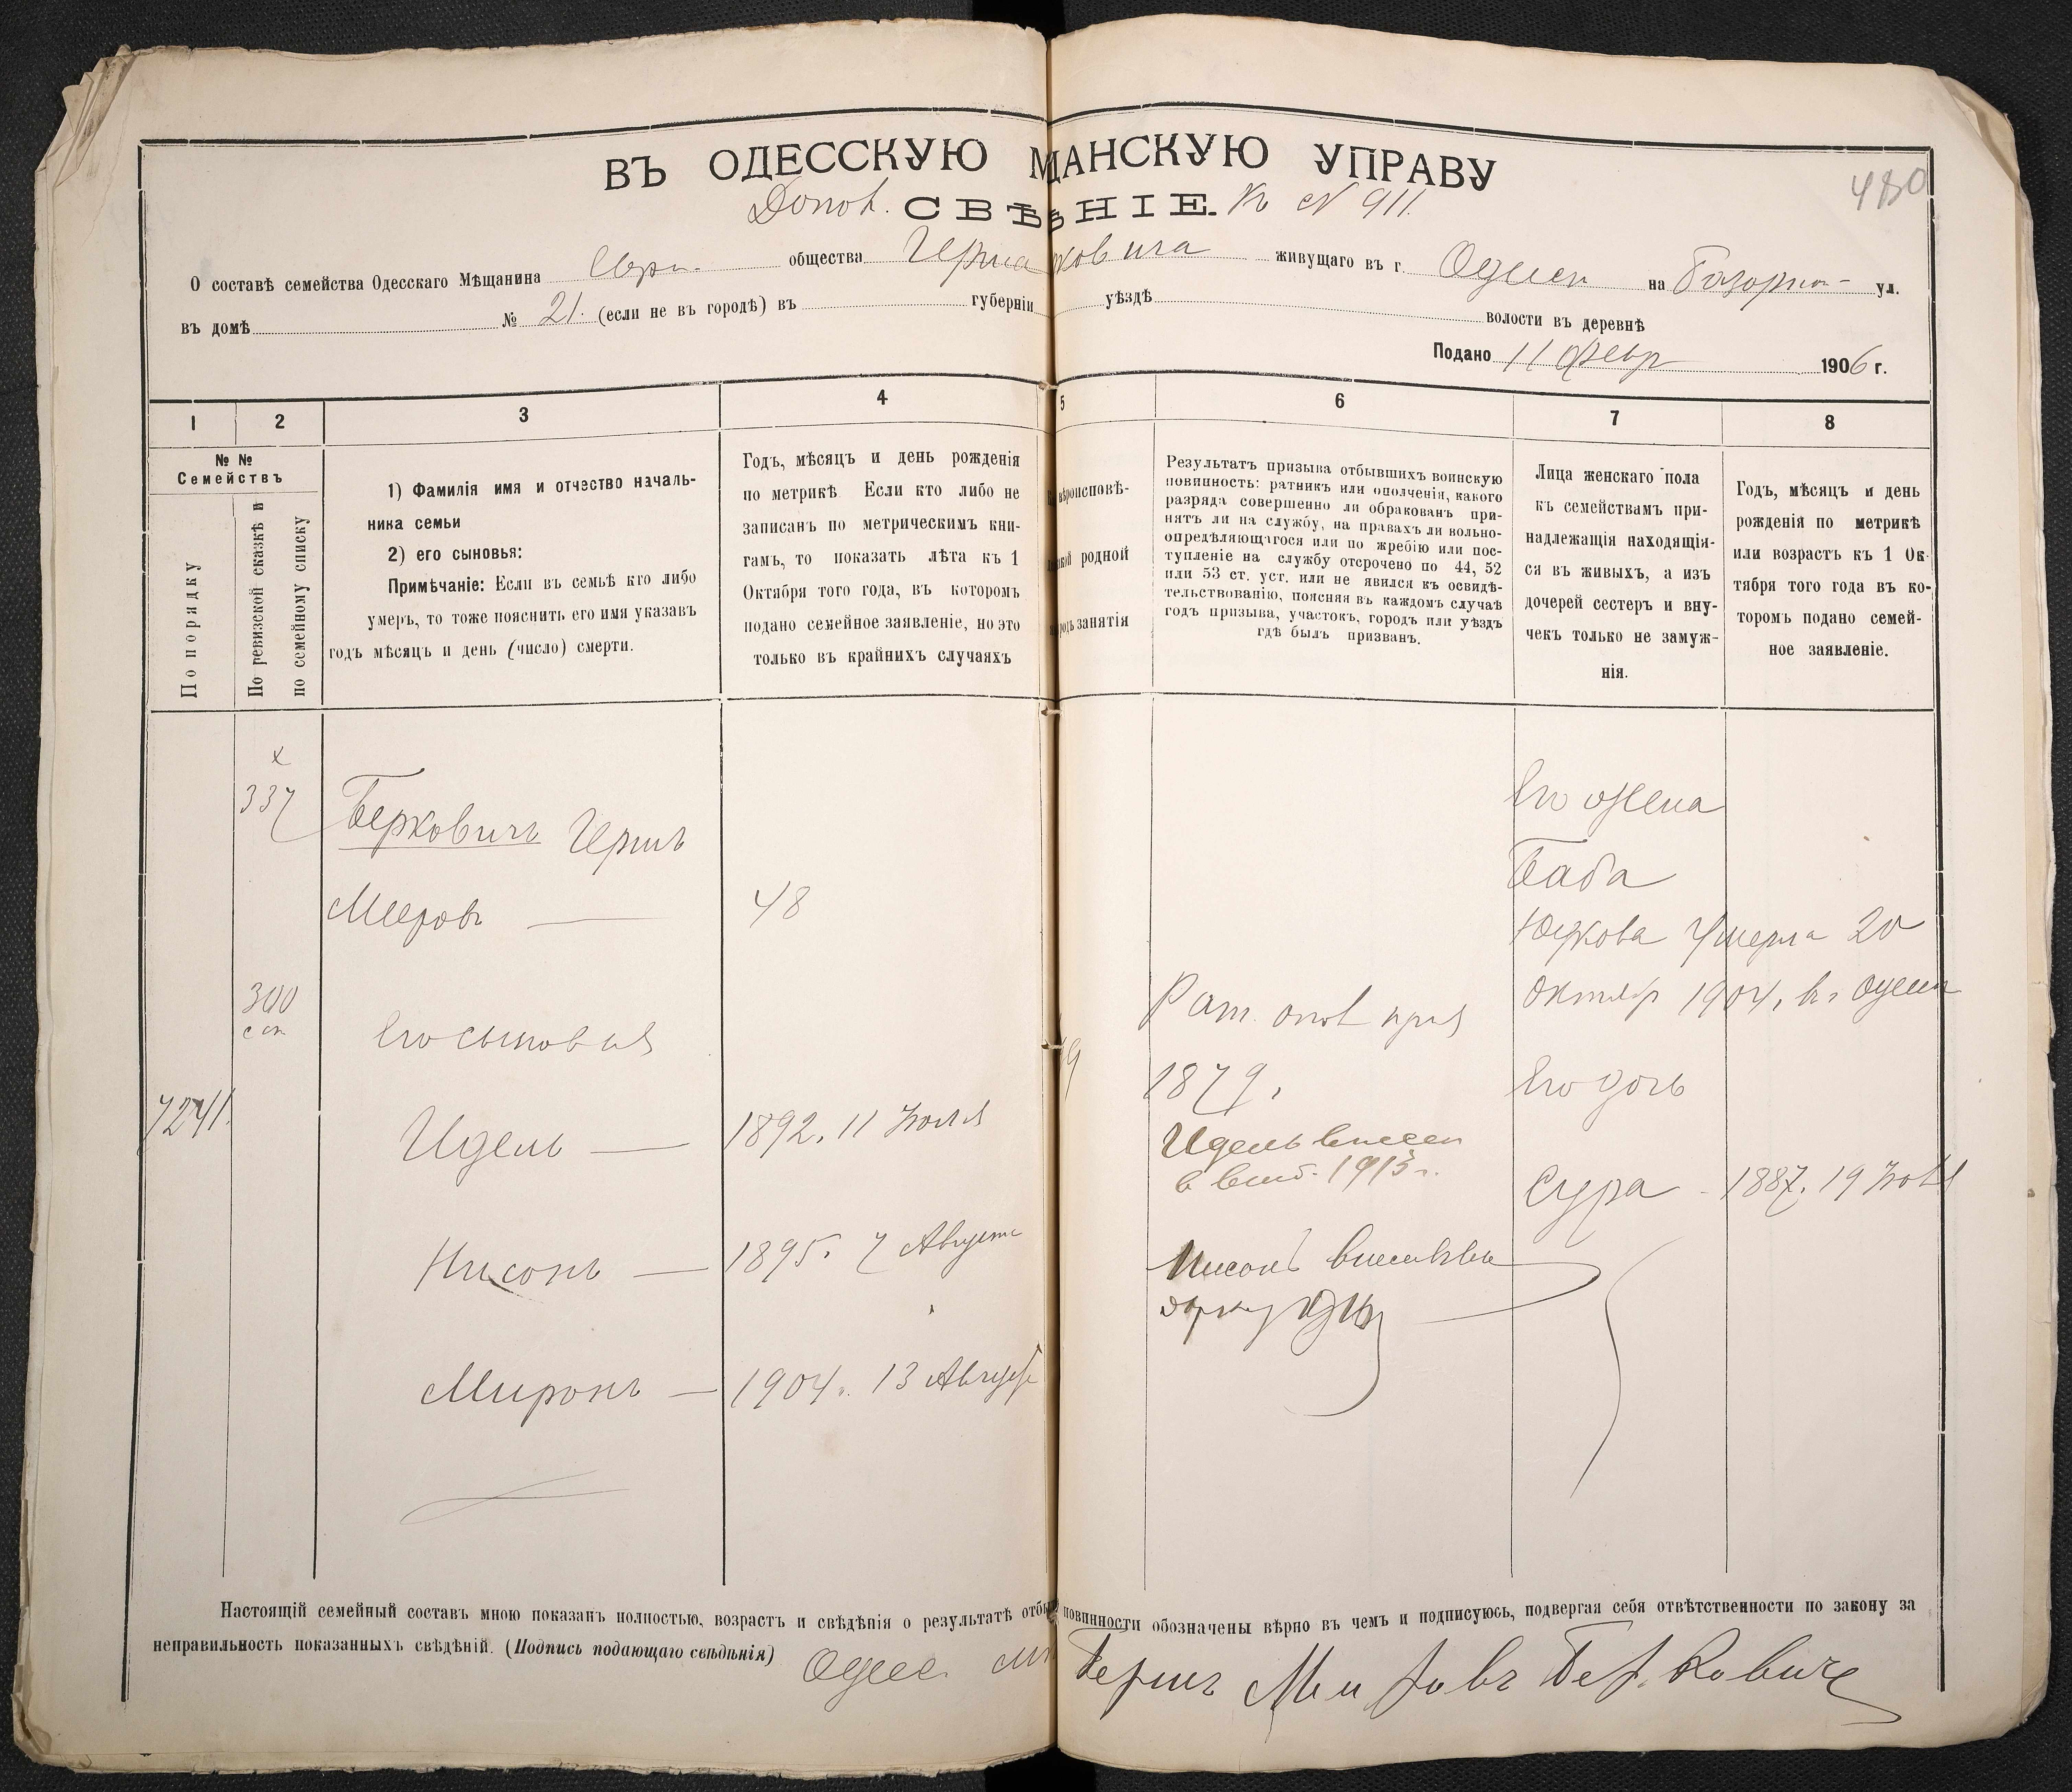 ВЪ ОДЕССКУЮ М ЩАНСКУЮ УПРАВУ
480
Допол. СВѢ НІЕ. К № 911.
О составѣ семейства Одесскаго Мѣщанина Евр. общества Герша ковича живущаго въ г. Одессѣ на Базарной ул.
въ домѣ № 21. (если не въ городѣ) въ губерніи уѣздѣ волости въ деревнѣ
Подано 11 Февр 1906 г.
1 2 3 4 5 6 7 8
№ №
Семействъ
По порядку
По ревизской сказкѣ и
по семейному списку
1) Фамилія имя и отчество началь-
ника семьи
2) его сыновья:
Примѣчаніе: Если въ семьѣ кто либо
умеръ, то тоже пояснить его имя указавъ
годъ мѣсяцъ и день (число) смерти.
Годъ, мѣсяцъ и день рожденія
по метрикѣ Если кто либо не
записанъ по метрическимъ кни-
гамъ, то показать лѣта къ 1
Октября того года, въ которомъ
подано семейное заявленіе, но это
только въ крайнихъ случаяхъ
вѣроисповѣ-
родной
занятія
Результатъ призыва отбывшихъ воинскую
повинность: ратникъ или ополченія, какого
разряда совершенно ли обракованъ при-
нятъ ли на службу, на правахъ ли вольно-
опредѣляющагося или по жребію или пос-
тупленіе на службу отсрочено по 44, 52
или 53 ст. уст. или не явился къ освидѣ-
тельствованію, поясняя въ каждомъ случаѣ
годъ призыва, участокъ, городъ или уѣздъ
гдѣ былъ призванъ.
Лица женскаго пола
къ семействамъ при-
надлежащія находящія-
ся въ живыхъ, а изъ
дочерей сестеръ и вну-
чекъ только не замуж-
нія.
Годъ, мѣсяцъ и день
рожденія по метрикѣ
или возрастъ къ 1 Ок-
тября того года въ ко-
торомъ подано семей-
ное заявленіе.
х
337 Берковичъ Гершъ
Мееровъ — 48
300
Его сыновья
7241. Идель — 1892. 11 Іюля
Нисонъ — 1895. 7 Августа
Миронъ — 1904. 13 Август
Рат. опол приз
1879.
Идель внесен
в 1913 г.
Нисонъ
Его жена
Баба
Юдкова Умерла 20
Октябр 1904, въ Одессѣ
Его дочь
Сура - 1887. 19
Настоящій семейный составъ мною показанъ полностью, возрастъ и свѣдѣнія о результатѣ отбы повинности обозначены вѣрно въ чемъ и подписуюсь, подвергая себя отвѣтственности по закону за
неправильность показанныхъ свѣдѣній. (Подпись подающаго свѣдѣнія) Одес. Гершъ Мееровъ Берковичъ